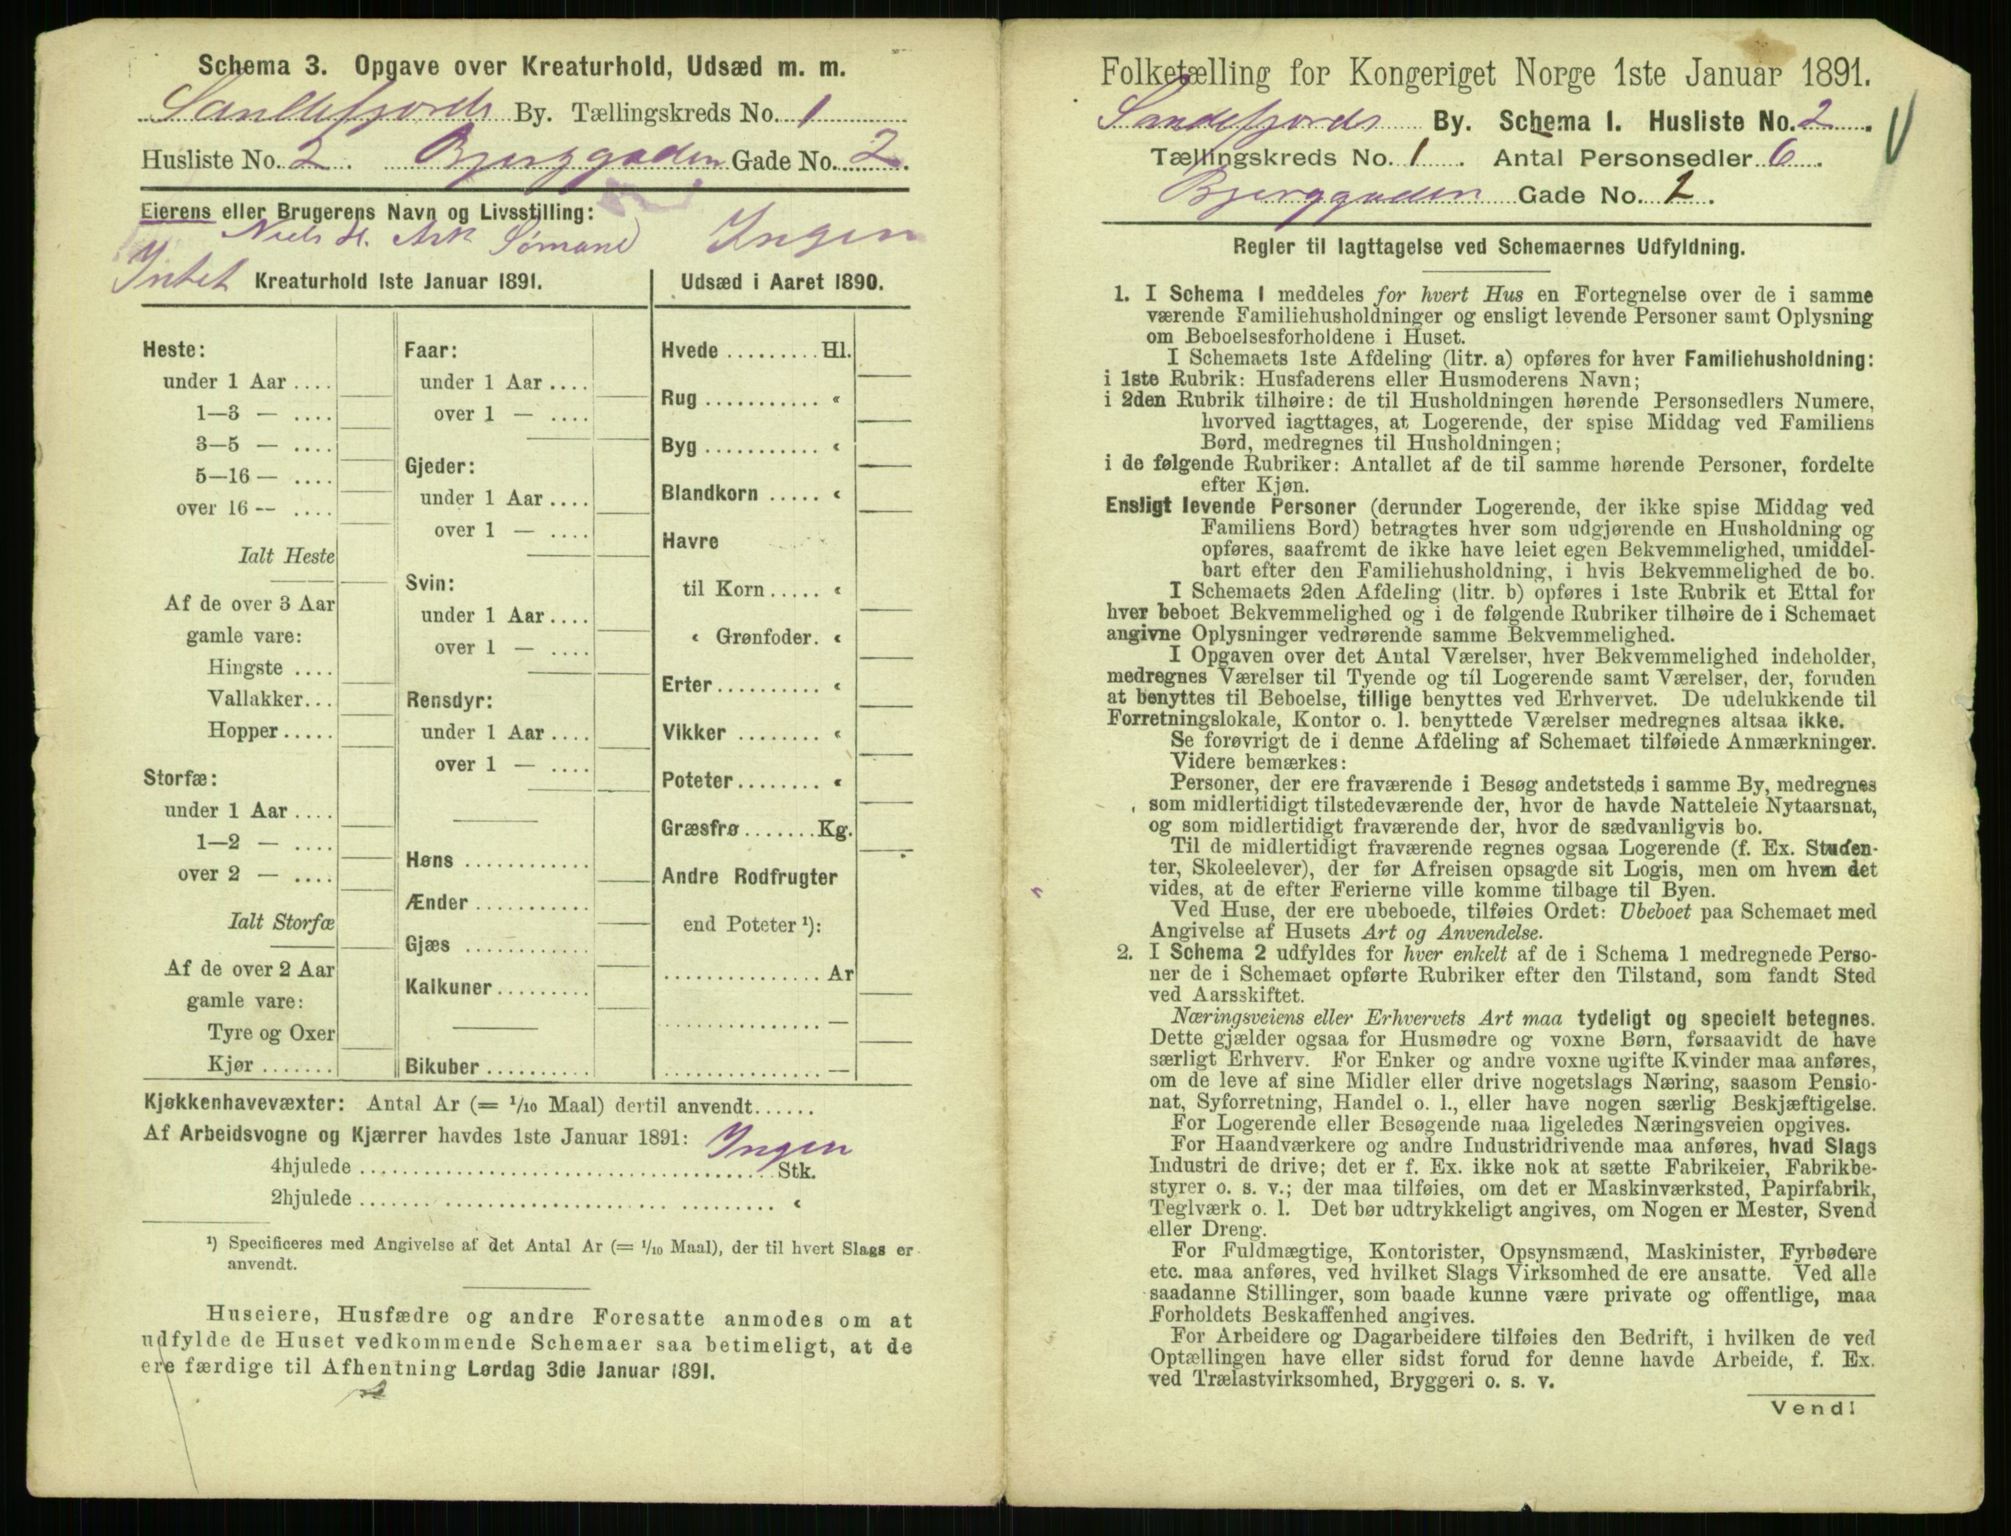 Schema 3. Opgave over Kreaturhold, Udsæd m. m.
Sandefjords By. Tællingskreds No. 1
Husliste No. 2. Bjerggaden Gade No. 2.
Eierens eller Brugerens Navn og Livsstilling:
Niels H. Ask Sømand Ingen
Intet Kreaturhold 1ste Januar 1891.
Udsæd i Aaret 1890.
Heste:
under 1 Aar ....
1—3 — ....
3—5 — ....
5—16 — ....
over 16 -- ....
Ialt Heste
Af de over 3 Aar
gamle vare:
Hingste ....
Vallakker...
Hopper.....
Storfæ:
under 1 Aar ....
1—2 — ....
over 2 — ....
Ialt Storfæ
Af de over 2 Aar
gamle vare:
Tyre og Oxer
Kjør .......
Faar:
under 1 Aar ....
over 1 — ....
Gjeder:
under 1 Aar ....
over 1 — ....
Svin:
under 1 Aar ....
over 1 — ....
Rensdyr:
under 1 Aar ....
over 1 — ....
Høns ............
Ænder ...........
Gjæs ............
Kalkuner.........
Bikuber ..........
Hvede ......... Hl.
Rug ........... «
Byg ........... «
Blandkorn ..... «
Havre
til Korn ..... «
« Grønfoder. «
Erter.......... «
Vikker ........ «
Poteter........ «
Græsfrø ....... Kg.
Andre Rodfrugter
end Poteter ¹):
............... Ar
............... —
............... —
Kjøkkenhavevæxter: Antal Ar (= 1/10 Maal) dertil anvendt......
Af Arbeidsvogne og Kjærrer havdes 1ste Januar 1891: Ingen
4hjulede ........................................ Stk.
2hjulede ........................................ «
¹) Specificeres med Angivelse af det Antal Ar (= 1/10 Maal), der til hvert Slags er
anvendt.
Huseiere, Husfædre og andre Foresatte anmodes om at
udfylde de Huset vedkommende Schemaer saa betimeligt, at de
ere færdige til Afhentning Lørdag 3die Januar 1891.
Folketælling for Kongeriget Norge 1ste Januar 1891.
Sandefjords By. Schema 1. Husliste No. 2.
Tællingskreds No. 1. Antal Personsedler 6.
Bjerggaden Gade No. 2.
Regler til Iagttagelse ved Schemaernes Udfyldning.
1. I Schema 1 meddeles for hvert Hus en Fortegnelse over de i samme
værende Familiehusholdninger og ensligt levende Personer samt Oplysning
om Beboelsesforholdene i Huset.
I Schemaets 1ste Afdeling (litr. a) opføres for hver Familiehusholdning:
i 1ste Rubrik: Husfaderens eller Husmoderens Navn;
i 2den Rubrik tilhøire: de til Husholdningen hørende Personsedlers Numere,
hvorved iagttages, at Logerende, der spise Middag ved Familiens
Bord, medregnes til Husholdningen;
i de følgende Rubriker: Antallet af de til samme hørende Personer, fordelte
efter Kjøn.
Ensligt levende Personer (derunder Logerende, der ikke spise Middag ved
Familiens Bord) betragtes hver som udgjørende en Husholdning og
opføres, saafremt de ikke have leiet egen Bekvemmelighed, umiddel-
bart efter den Familiehusholdning, i hvis Bekvemmelighed de bo.
I Schemaets 2den Afdeling (litr. b) opføres i 1ste Rubrik et Ettal for
hver beboet Bekvemmelighed og i de følgende Rubriker tilhøire de i Schemaet
angivne Oplysninger vedrørende samme Bekvemmelighed.
I Opgaven over det Antal Værelser, hver Bekvemmelighed indeholder,
medregnes Værelser til Tyende og til Logerende samt Værelser, der, foruden
at benyttes til Beboelse, tillige benyttes ved Erhvervet. De udelukkende til
Forretningslokale, Kontor o. l. benyttede Værelser medregnes altsaa ikke.
Se forøvrigt de i denne Afdeling af Schemaet tilføiede Anmærkninger.
Videre bemærkes:
Personer, der ere fraværende i Besøg andetsteds i samme By, medregnes
som midlertidigt tilstedeværende der, hvor de havde Natteleie Nytaarsnat,
og som midlertidigt fraværende der, hvor de sædvanligvis bo.
Til de midlertidigt fraværende regnes ogsaa Logerende (f. Ex. Studen-
ter, Skoleelever), der før Afreisen opsagde sit Logis, men om hvem det
vides, at de efter Ferierne ville komme tilbage til Byen.
Ved Huse, der ere ubeboede, tilføies Ordet: Ubeboet paa Schemaet med
Angivelse af Husets Art og Anvendelse.
2. I Schema 2 udfyldes for hver enkelt af de i Schema 1 medregnede Perso-
ner de i Schemaet opførte Rubriker efter den Tilstand, som fandt Sted
ved Aarsskiftet.
Næringsveiens eller Erhvervets Art maa tydeligt og specielt betegnes.
Dette gjælder ogsaa for Husmødre og voxne Børn, forsaavidt de have
særligt Erhverv. For Enker og andre voxne ugifte Kvinder maa anføres,
om de leve af sine Midler eller drive nogetslags Næring, saasom Pensio-
nat, Syforretning, Handel o. l., eller have nogen særlig Beskjæftigelse.
For Logerende eller Besøgende maa ligeledes Næringsveien opgives.
For Haandværkere og andre Industridrivende maa anføres, hvad Slags
Industri de drive; det er f. Ex. ikke nok at sætte Fabrikeier, Fabrikbe-
styrer o. s. v.; der maa tilføies, om det er Maskinværksted, Papirfabrik,
Teglværk o. l. Det bør udtrykkeligt angives, om Nogen er Mester, Svend
eller Dreng.
For Fuldmægtige, Kontorister, Opsynsmænd, Maskinister, Fyrbødere
etc. maa anføres, ved hvilket Slags Virksomhed de ere ansatte. Ved alle
saadanne Stillinger, som baade kunne være private og offentlige, maa
Forholdets Beskaffenhed angives.
For Arbeidere og Dagarbeidere tilføies den Bedrift, i hvilken de ved
Optællingen have eller sidst forud for denne havde Arbeide, f. Ex.
ved Trælastvirksomhed, Bryggeri o. s. v.
Vend!